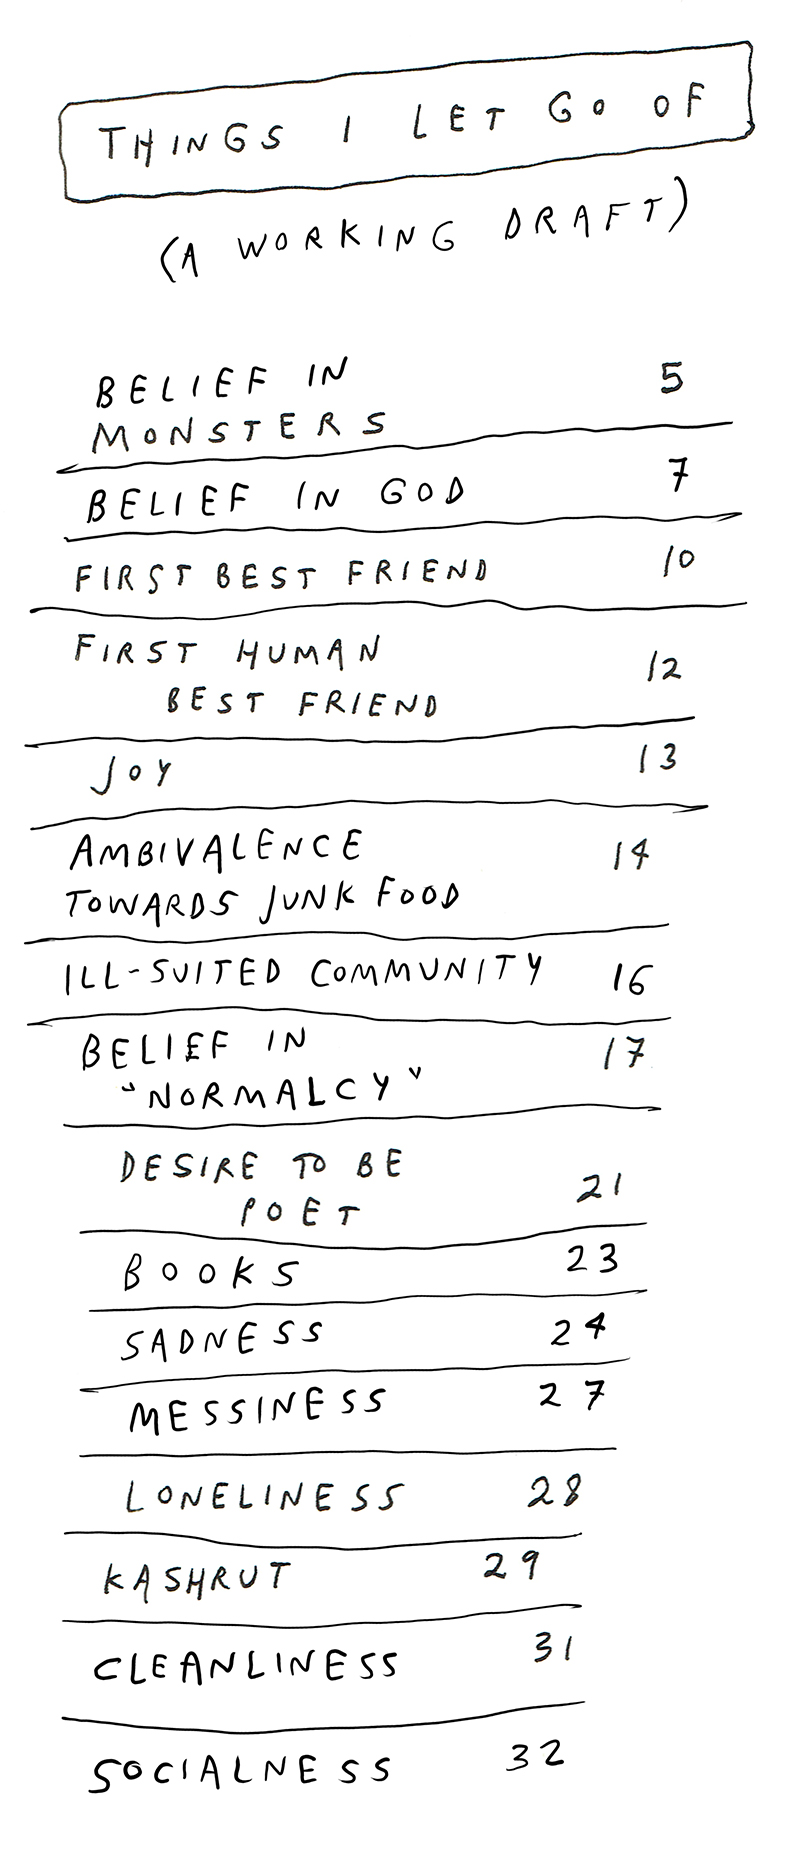 THINGS I LET GO OF
(A WORKING DRAFT)
BELIEF IN
MONSTERS 5
BELIEF IN GOD 7
FIRST BEST FRIEND 10
FIRST HUMAN
BEST FRIEND 12
JOY 13
AMBIVALENCE 14
TOWARDS JUNK FOOD
ILL-SUITED COMMUNITY 16
BELIEF IN 17
"NORMALCY"
DESIRE TO BE
POET 21
BOOKS 23
SADNESS 24
MESSINESS 27
LONELINESS 28
KASHRUT 29
CLEANLINESS 31
SOCIALNESS 32